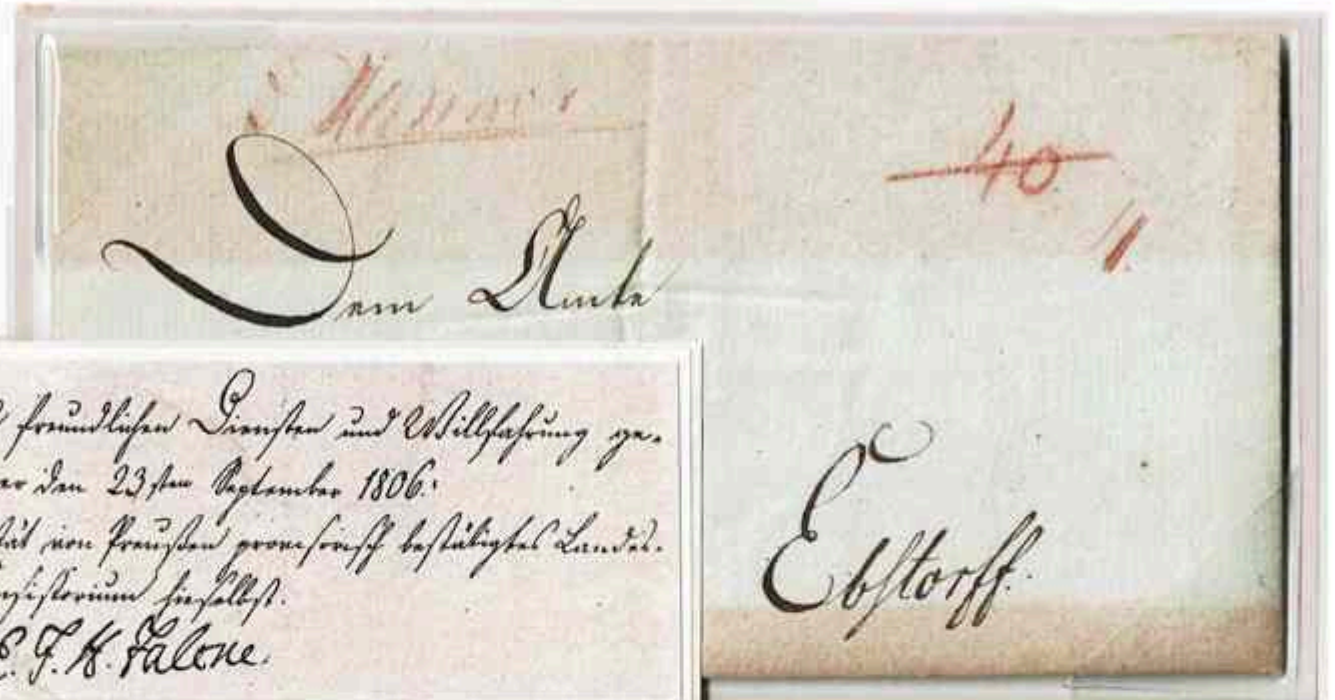 Hannover
40
11.
Dem Amte
Ebstorff.
freundlichen Diensten und Willfahrung ge-
er den 23sten September 1806.
tät von Preußen provisorisch bestätigtes Landes-
nsistorium hieselbst.
E. F. H. Falcke.